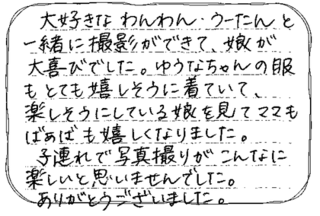 大好きな わんわん・うーたん と
一緒に撮影ができて、娘が
大喜びでした。ゆうなちゃんの服
も とても 嬉しそうに着ていて、
楽しそうにしている娘を見てママも
ばぁばも嬉しくなりました。
子連れで写真撮りが こんなに
楽しいと思いませんでした。
ありがとうございました。